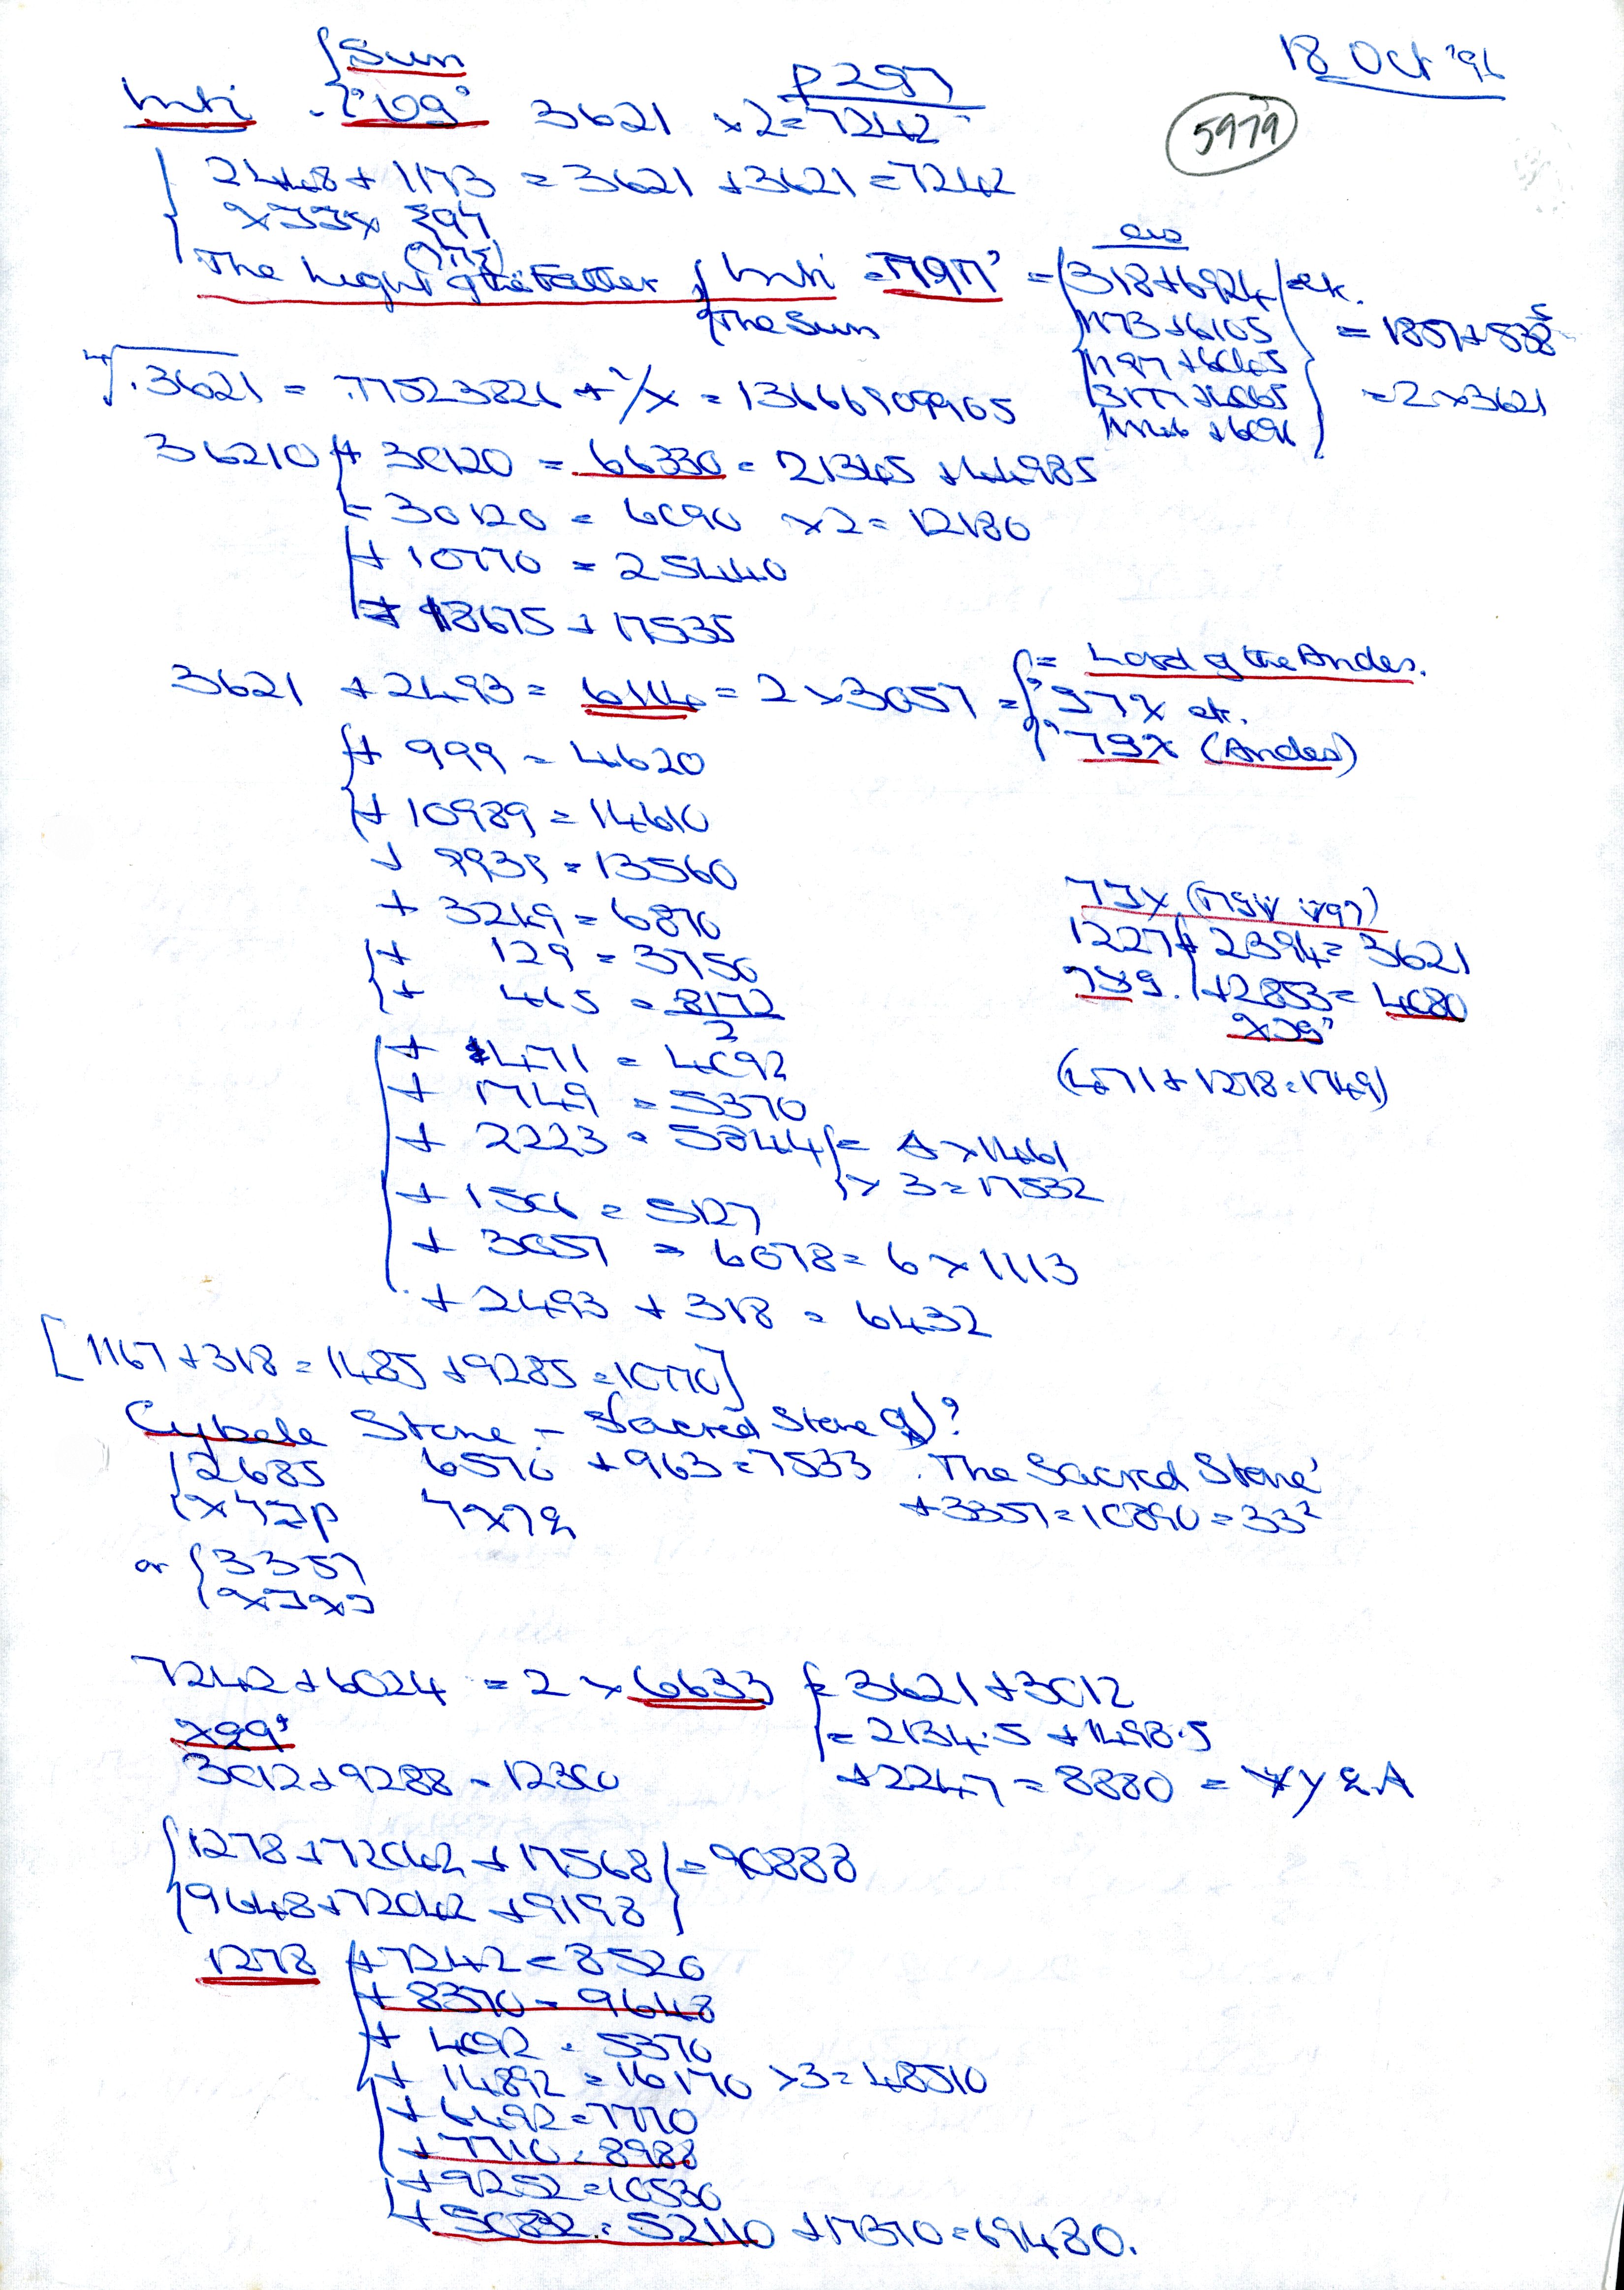 18 Oct '91
{Sun
Inti - {"109" 3621 x2=7242
p297
5979
2448+1173 = 3621 +3621=7242
The Light of the Father { Inti = "7977" = (318+6924) = etc.
{The Sun
1173+6105 = 1857+5385
1197+6045
3177+4065 = 2x3621
1146+6096
∜.3621 = .77523826 + 1/x = 13666909905
36210 {+ 30120 = 66330 = 21345 +44985
- 30120 = 6090 x2= 12180
+ 10770 = 25440
= 18675 + 17535
3621 +2493 = 6114 = 2x3057 = {= Lord of the Andes.
etc.
(Andes)
{+ 999 = 4620
{+ 10989 = 14610
+ 9939 = 13560
+ 3249 = 6870
{+ 129 = 3750
{+ 465 = 8172/2
+ 471 = 4092
+ 1749 = 5370
+ 2223 = 5844 {= 4x1461
x 3=17532
+ 1506 = 5127
+ 3057 = 6678= 6x1113
+ 2493 + 318 = 6432
1227 {+ 2394= 3621
+2853= 4080
(471+1278=1749)
[1167+318=1485+9285=10770]
Cybele Stone - Sacred Stone of)?
{2685 6570 +963=7533 'The Sacred Stone'
+3357=10890=33²
or {3357
7242+6024 = 2x6633 {= 3621+3012
= 2134.5 +4498.5
3012+9288=12300 +2247=8880 =
{1278+72042+17568}=90888
{9648+72042 +9198}
1278 {+7242=8520
+ 8370 = 9648
+ 4092 = 5370
+ 14892 = 16170 x3=48510
+ 6492=7770
+7710=8988
+9252=10530
+50832=52110 +17370=69480.